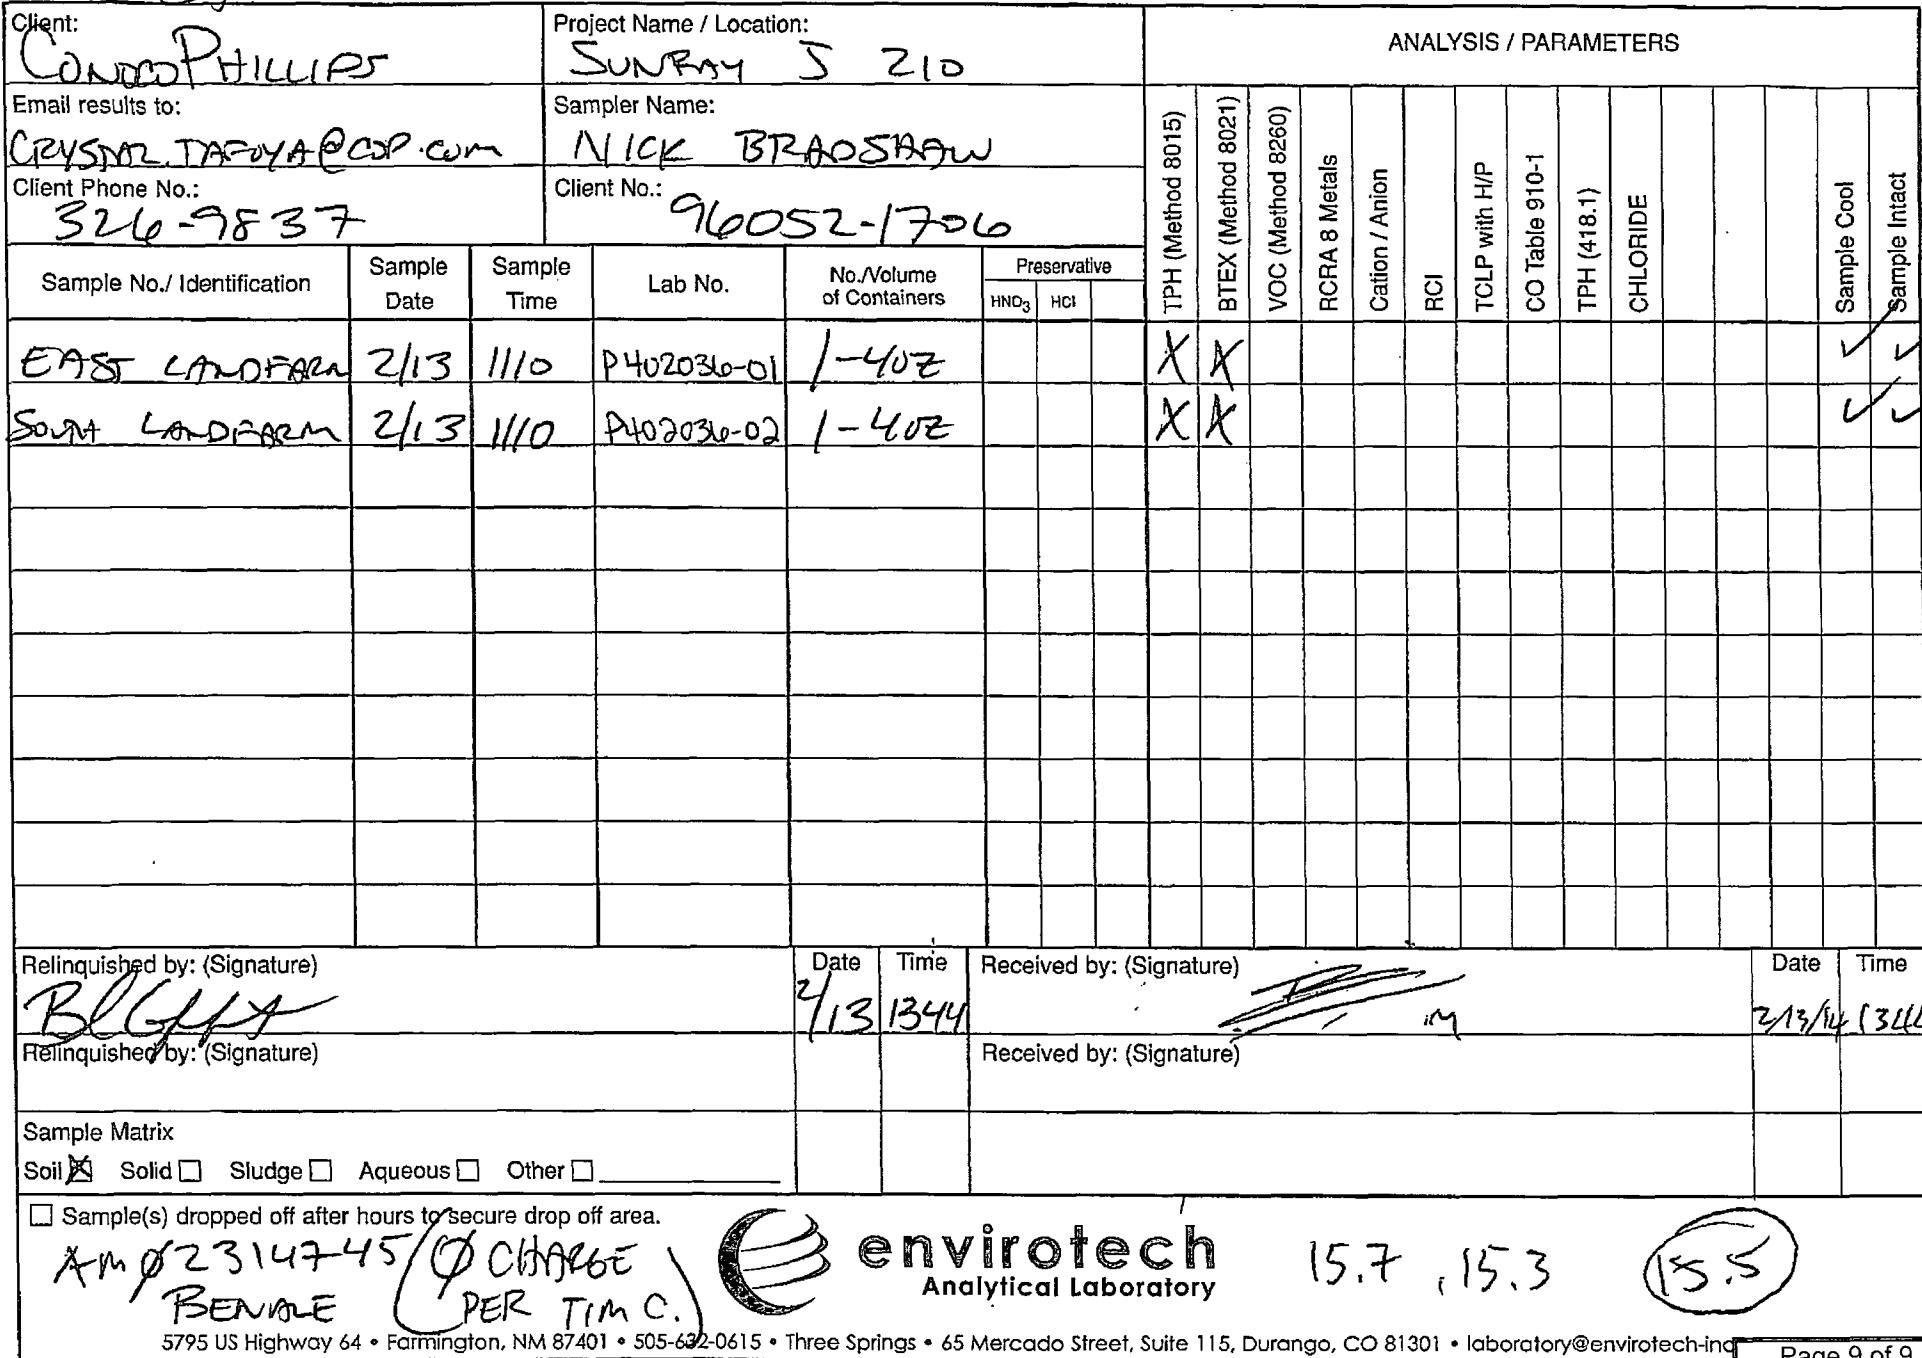 Client:
CONOCOPHILLIPS
Project Name / Location:
SUNRAY J 210
ANALYSIS / PARAMETERS
Email results to:
CRYSTAL.TAFOYA@COP.com
Sampler Name:
NICK BRADSHAW
Client Phone No.:
326-9837
Client No.:
96052-1706
Sample No./ Identification
Sample Date
Sample Time
Lab No.
No./Volume of Containers
Preservative
HNO3 HCl
TPH (Method 8015)
BTEX (Method 8021)
VOC (Method 8260)
RCRA 8 Metals
Cation / Anion
RCI
TCLP with H/P
CO Table 910-1
TPH (418.1)
CHLORIDE
Sample Cool
Sample Intact
EAST LANDFARM 2/13 1110 P402036-01 1-4oz X X ✓ ✓
SOUTH LANDFARM 2/13 1110 P402036-02 1-4oz X X ✓ ✓
Relinquished by: (Signature)
Date
2/13
Time
1344
Received by: (Signature)
Date
2/13/14
Time
1344
Relinquished by: (Signature)
Received by: (Signature)
Sample Matrix
Soil X Solid Sludge Aqueous Other
Sample(s) dropped off after hours to secure drop off area.
Ø CHARGE
PER TIM C.
envirotech
Analytical Laboratory
15.7, 15.3 15.5
5795 US Highway 64 • Farmington, NM 87401 • 505-632-0615 • Three Springs • 65 Mercado Street, Suite 115, Durango, CO 81301 • laboratory@envirotech-inc
Page 9 of 9